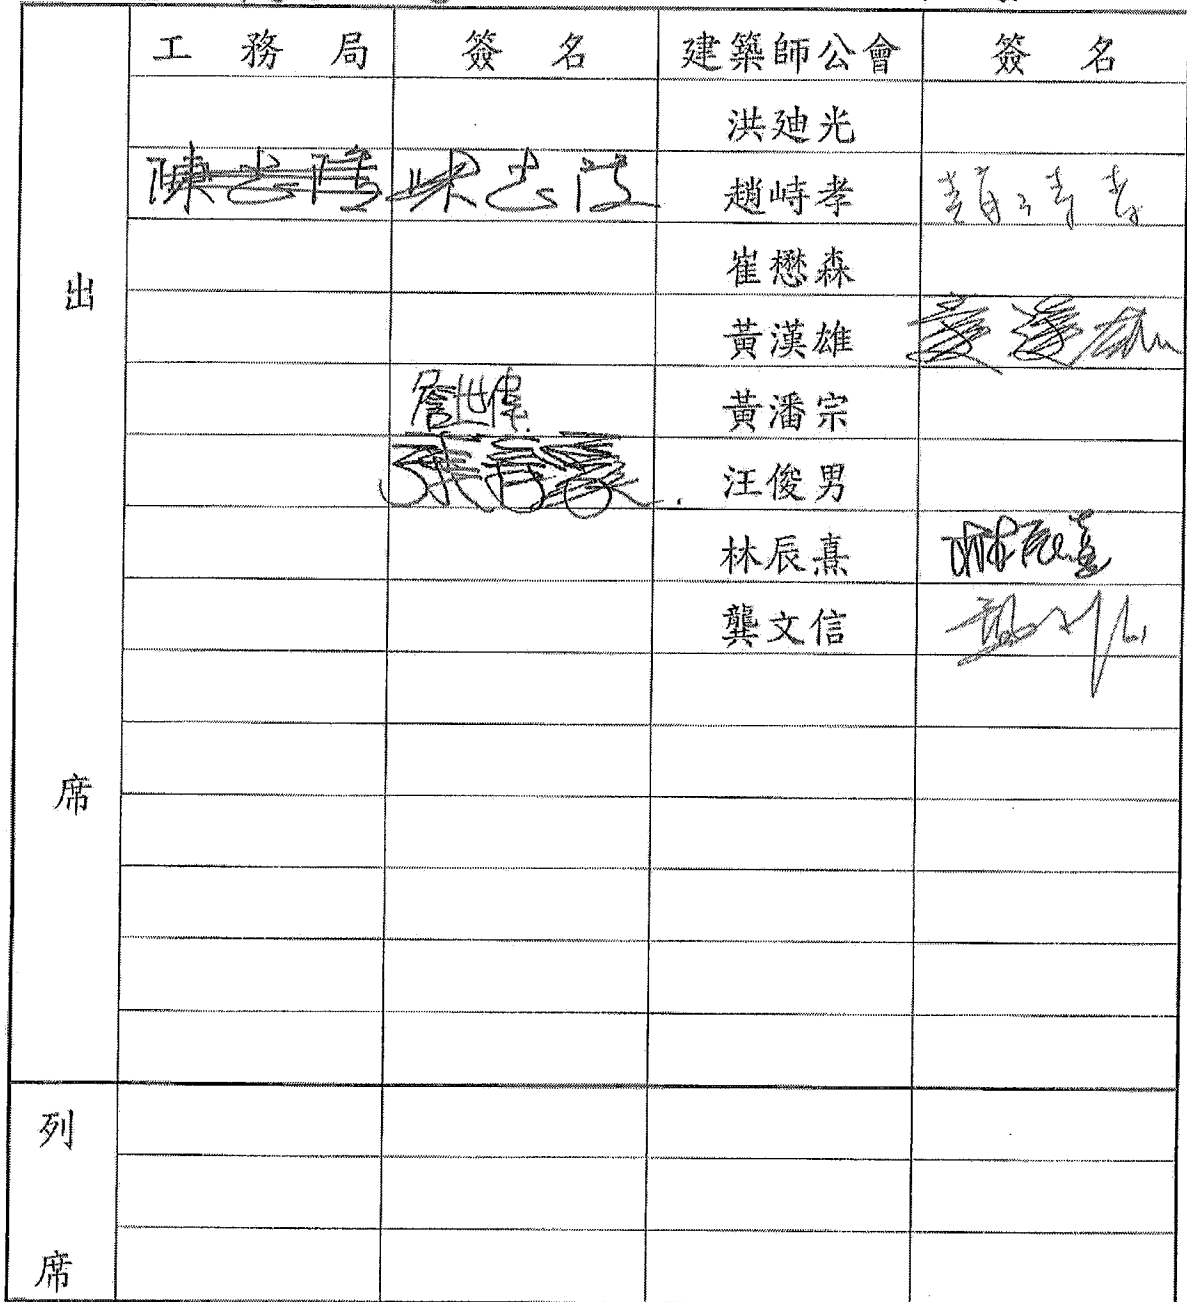 工務局 簽名 建築師公會 簽名
洪廸光
陳志隆 陳志隆 趙峙孝 趙峙孝
崔懋森
出
黃漢雄 黃漢雄
詹世偉 黃潘宗
汪俊男
林辰熹 林辰熹
龔文信 龔文信
席
列
席